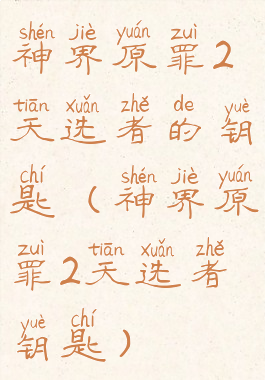 shén jiè yuán zuì
神界原罪2
tiān xuǎn zhě de yuè
天选者的钥
chí shén jiè yuán
匙（神界原
zuì tiān xuǎn zhě
罪2天选者
yuè chí
钥匙）